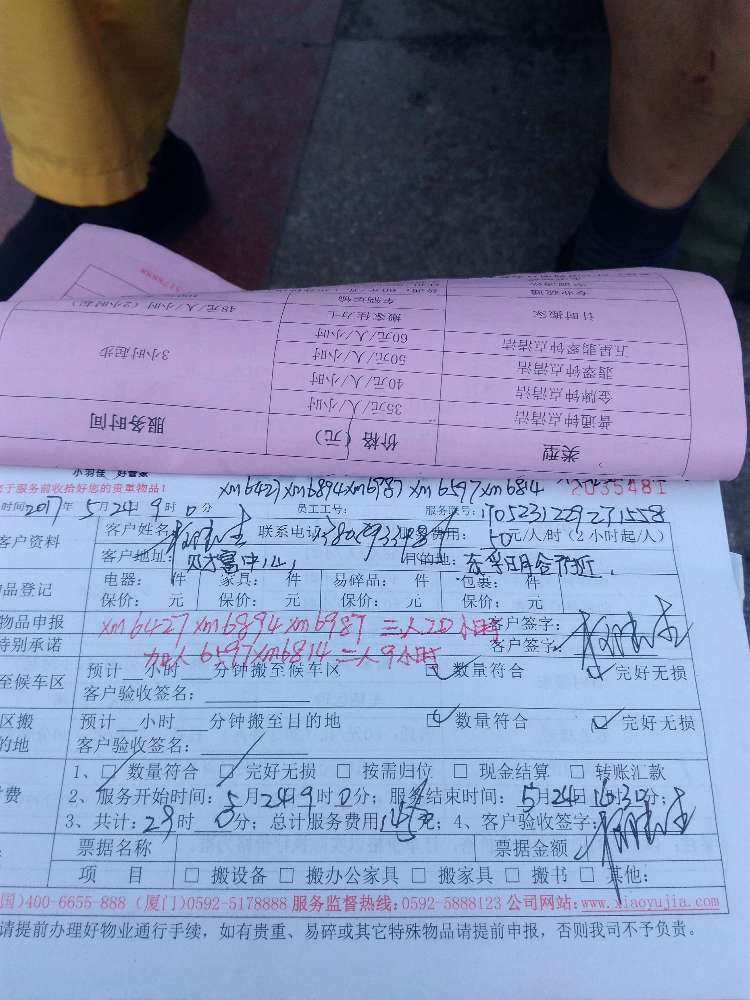 类型 价格（元） 服务时间
普通钟点清洁 35元/人/小时 3小时起步
金牌钟点清洁 40元/人/小时
翡翠钟点清洁 50元/人/小时
五星翡翠钟点清洁 60元/人/小时
计时搬家 48元/人/小时（2小时起）
小羽佳 好管家
于服务前收拾好您的贵重物品！
xm6427 xm6894 xm6987 xm6597 xm6814 2035481
时间2017年5月24日9时0分 员工工号： 服务账号：
客户资料 客户姓名 联系电话 费用：50元/人/时（2小时起/人）
客户地址：财富中心 目的地：
品登记 电器： 件 家具： 件 易碎品： 件 包装： 件
保价： 元 保价： 元 保价： 元 保价： 元
物品申报 xm6427 xm6894 xm6987 三人20小时 客户签字：
特别承诺 加人6597 xm6814 二人9小时 客户签字：
至候车区 预计__小时__分钟搬至候车区 数量符合 完好无损
客户验收签名：
区搬 预计__小时__分钟搬至目的地 数量符合 完好无损
的地 客户验收签名：
费 1、 数量符合 完好无损 □ 按需归位 □ 现金结算 □ 转账汇款
2、服务开始时间：5月24日9时0分；服务结束时间：5月24日16:30分；
3、共计：29时0分；总计服务费用 元；4、客户验收签字：
票据名称 票据金额
项 目 □ 搬设备 □ 搬办公家具 □ 搬家具 □ 搬书 □ 其他：
国)400-6655-888 (厦门)0592-5178888 服务监督热线：0592-5888123 公司网站：www.xiaoyujia.com
请提前办理好物业通行手续，如有贵重、易碎或其它特殊物品请提前申报，否则我司不予负责。